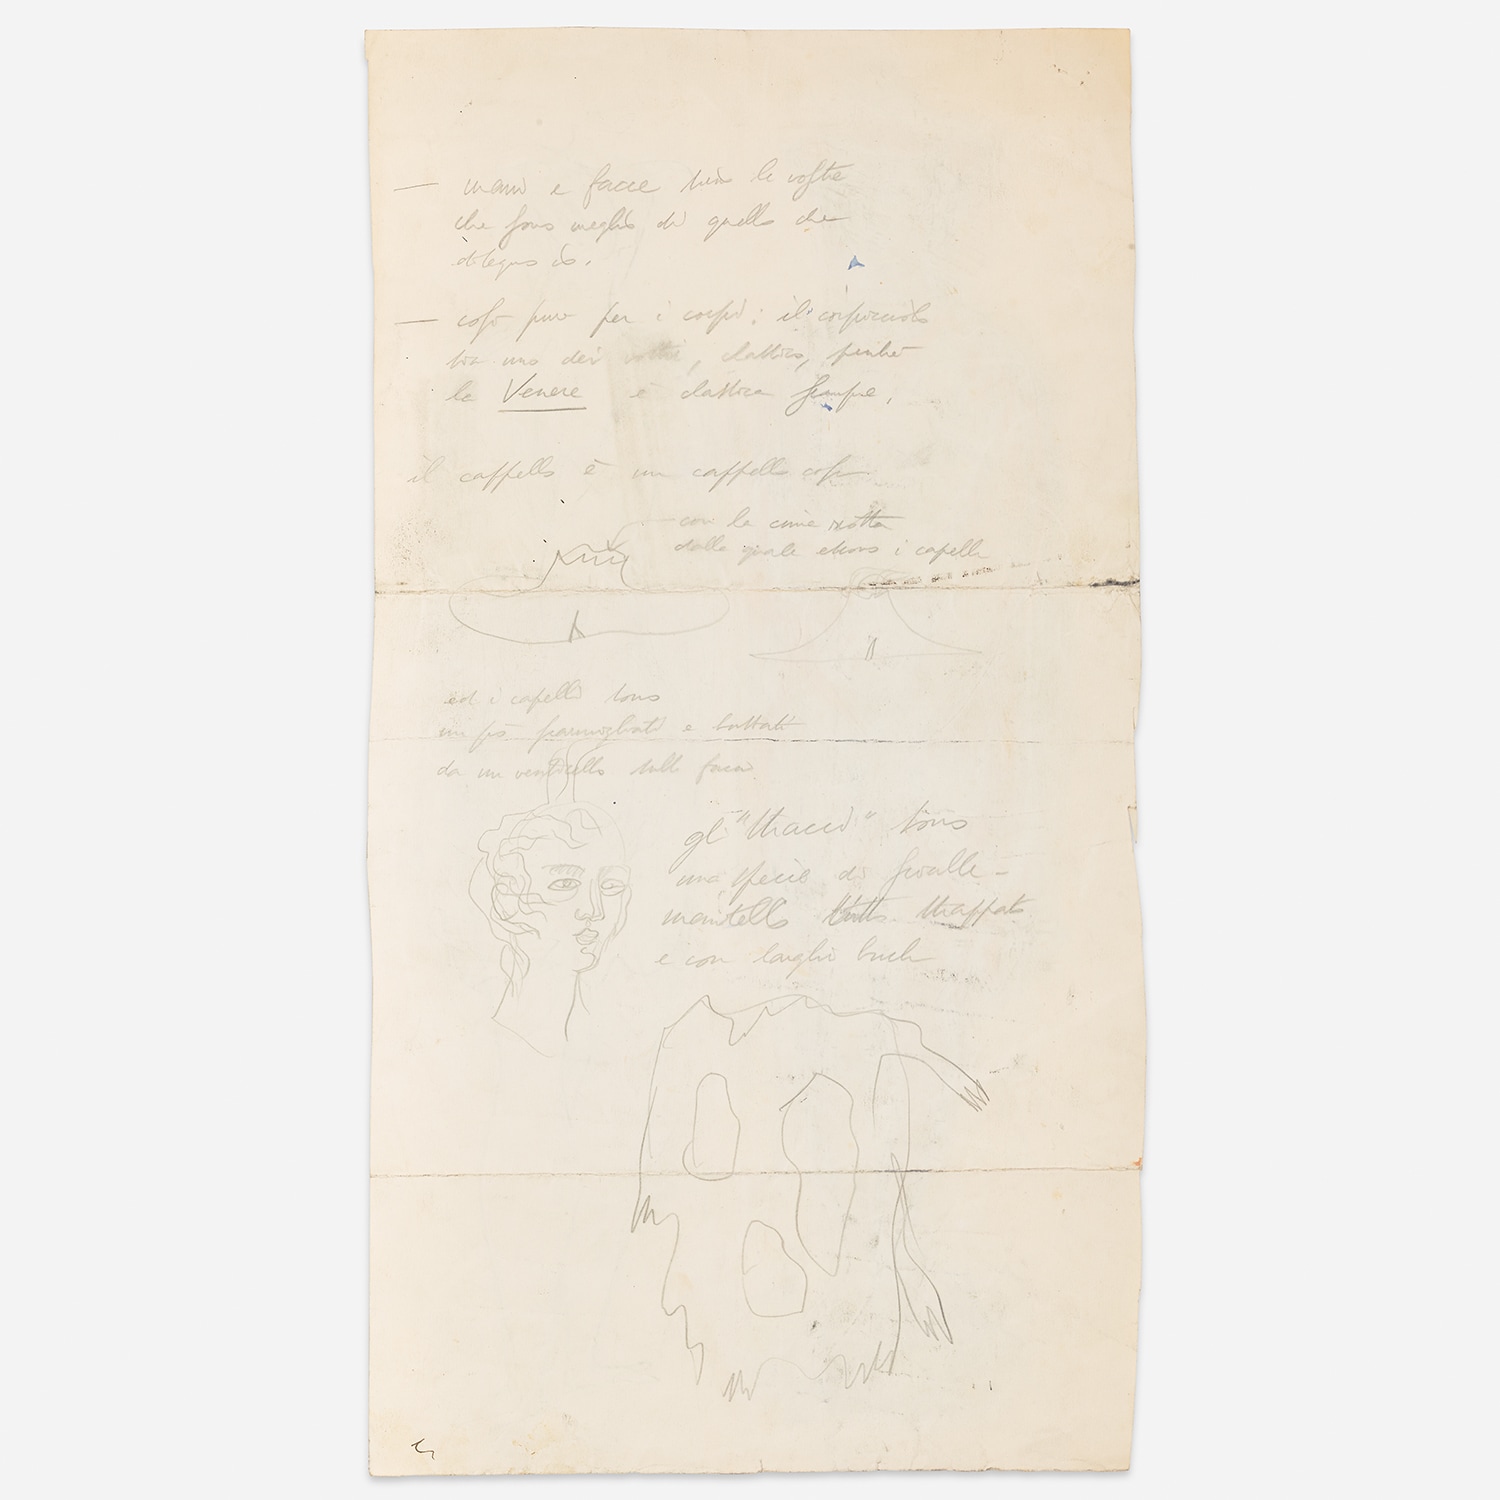 — mani e facce sian le vostre
che sono meglio di quello che
disegno io.
— così pure per i corpi; il corpicciolo
sia uno dei vostri, elastico, perché
la Venere è elastica sempre,
il cappello è un cappello così
con la cima rotta
dalla quale escono i capelli
ed i capelli sono
un pò scarmigliati e buttati
da un venticello sulla faccia
gli "stracci" sono
una specie di scialle-
mantello tutto strappato
e con larghi buchi